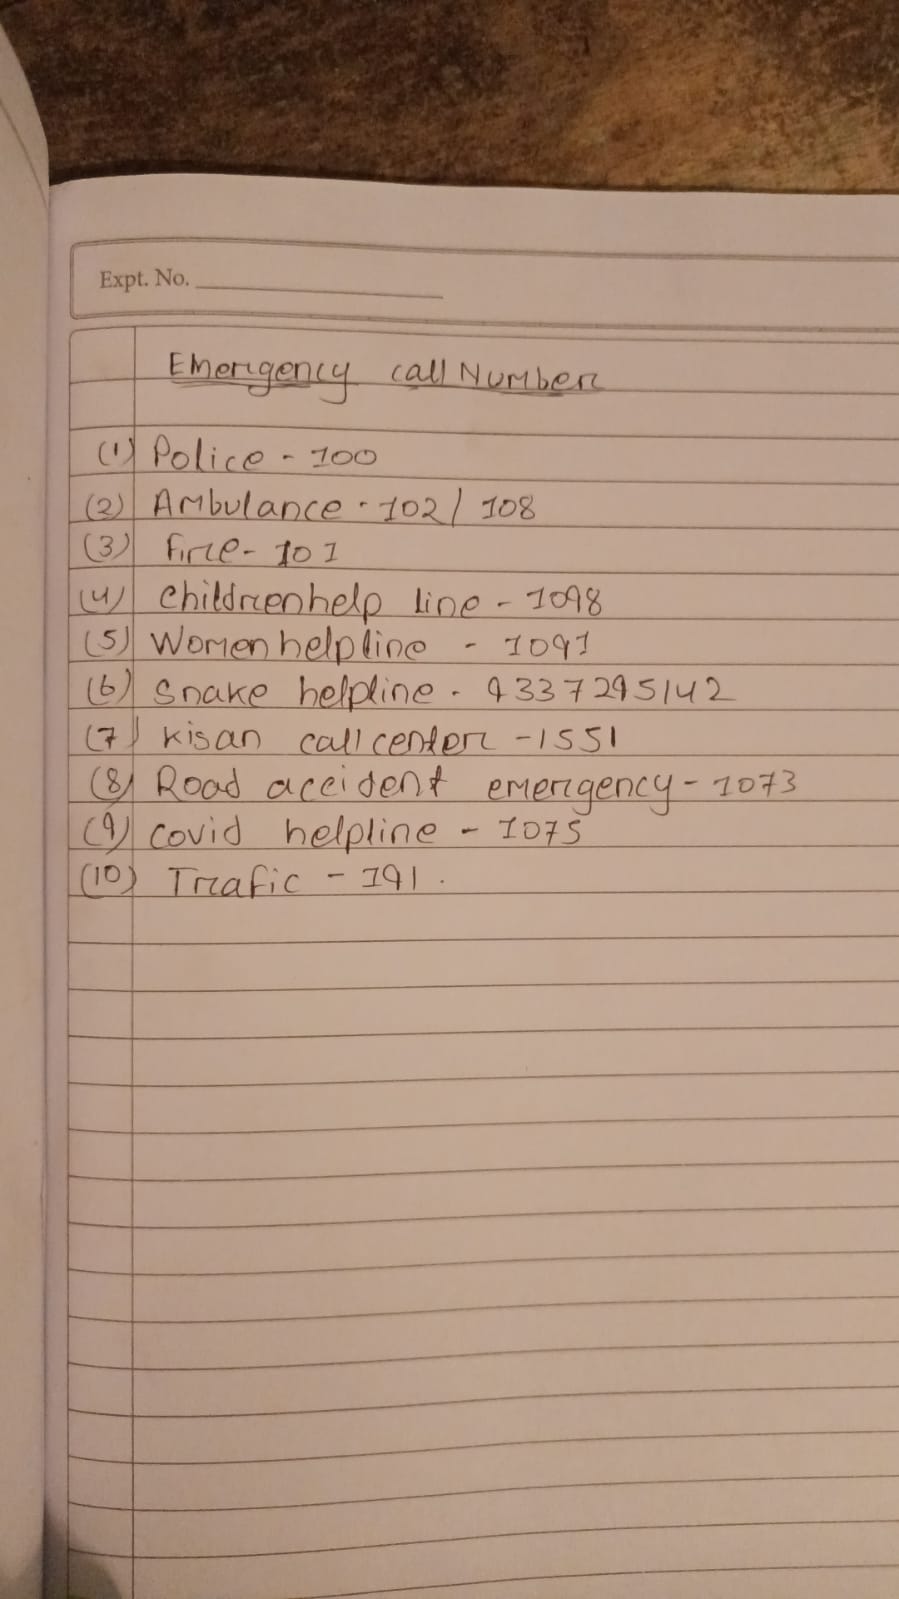 Expt. No.
Emergency call Number
(1) Police - 100
(2) Ambulance - 102/108
(3) Fire - 101
(4) Children help line - 1098
(5) Women helpline - 1091
(6) Snake helpline - 9337295142
(7) kisan call center - 1551
(8) Road accident emergency - 1073
(9) covid helpline - 1075
(10) Trafic - 191.